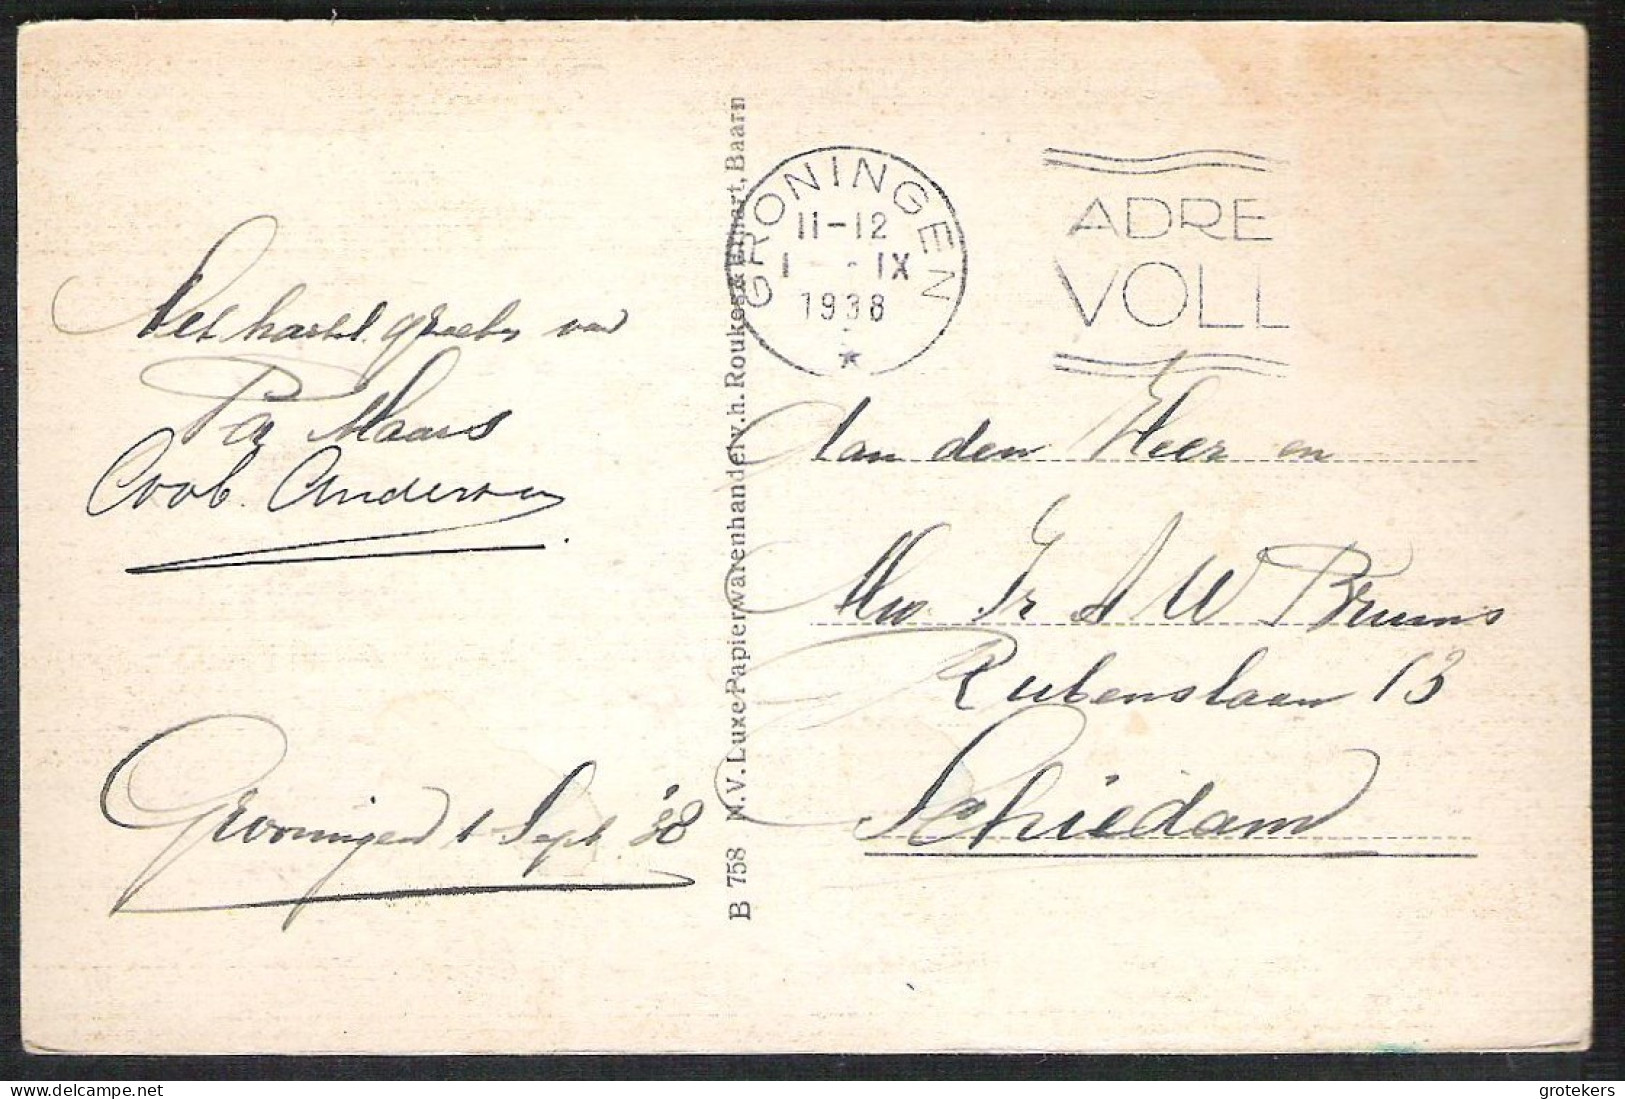 Met hartel. groeten van
Pa Maars
Coob. Anderson
Groningen 1 Sept. '38
B 758 N.V. Luxe-Papierwarenhandel v.h. Roukes & Erhart, Baarn
GRONINGEN
11-12
1 - IX
1938
ADRE
VOLL
Aan den Heer en
Mw Jr A W Bruins
Rubenslaan 13
Schiedam
© by grotekers
grotekers